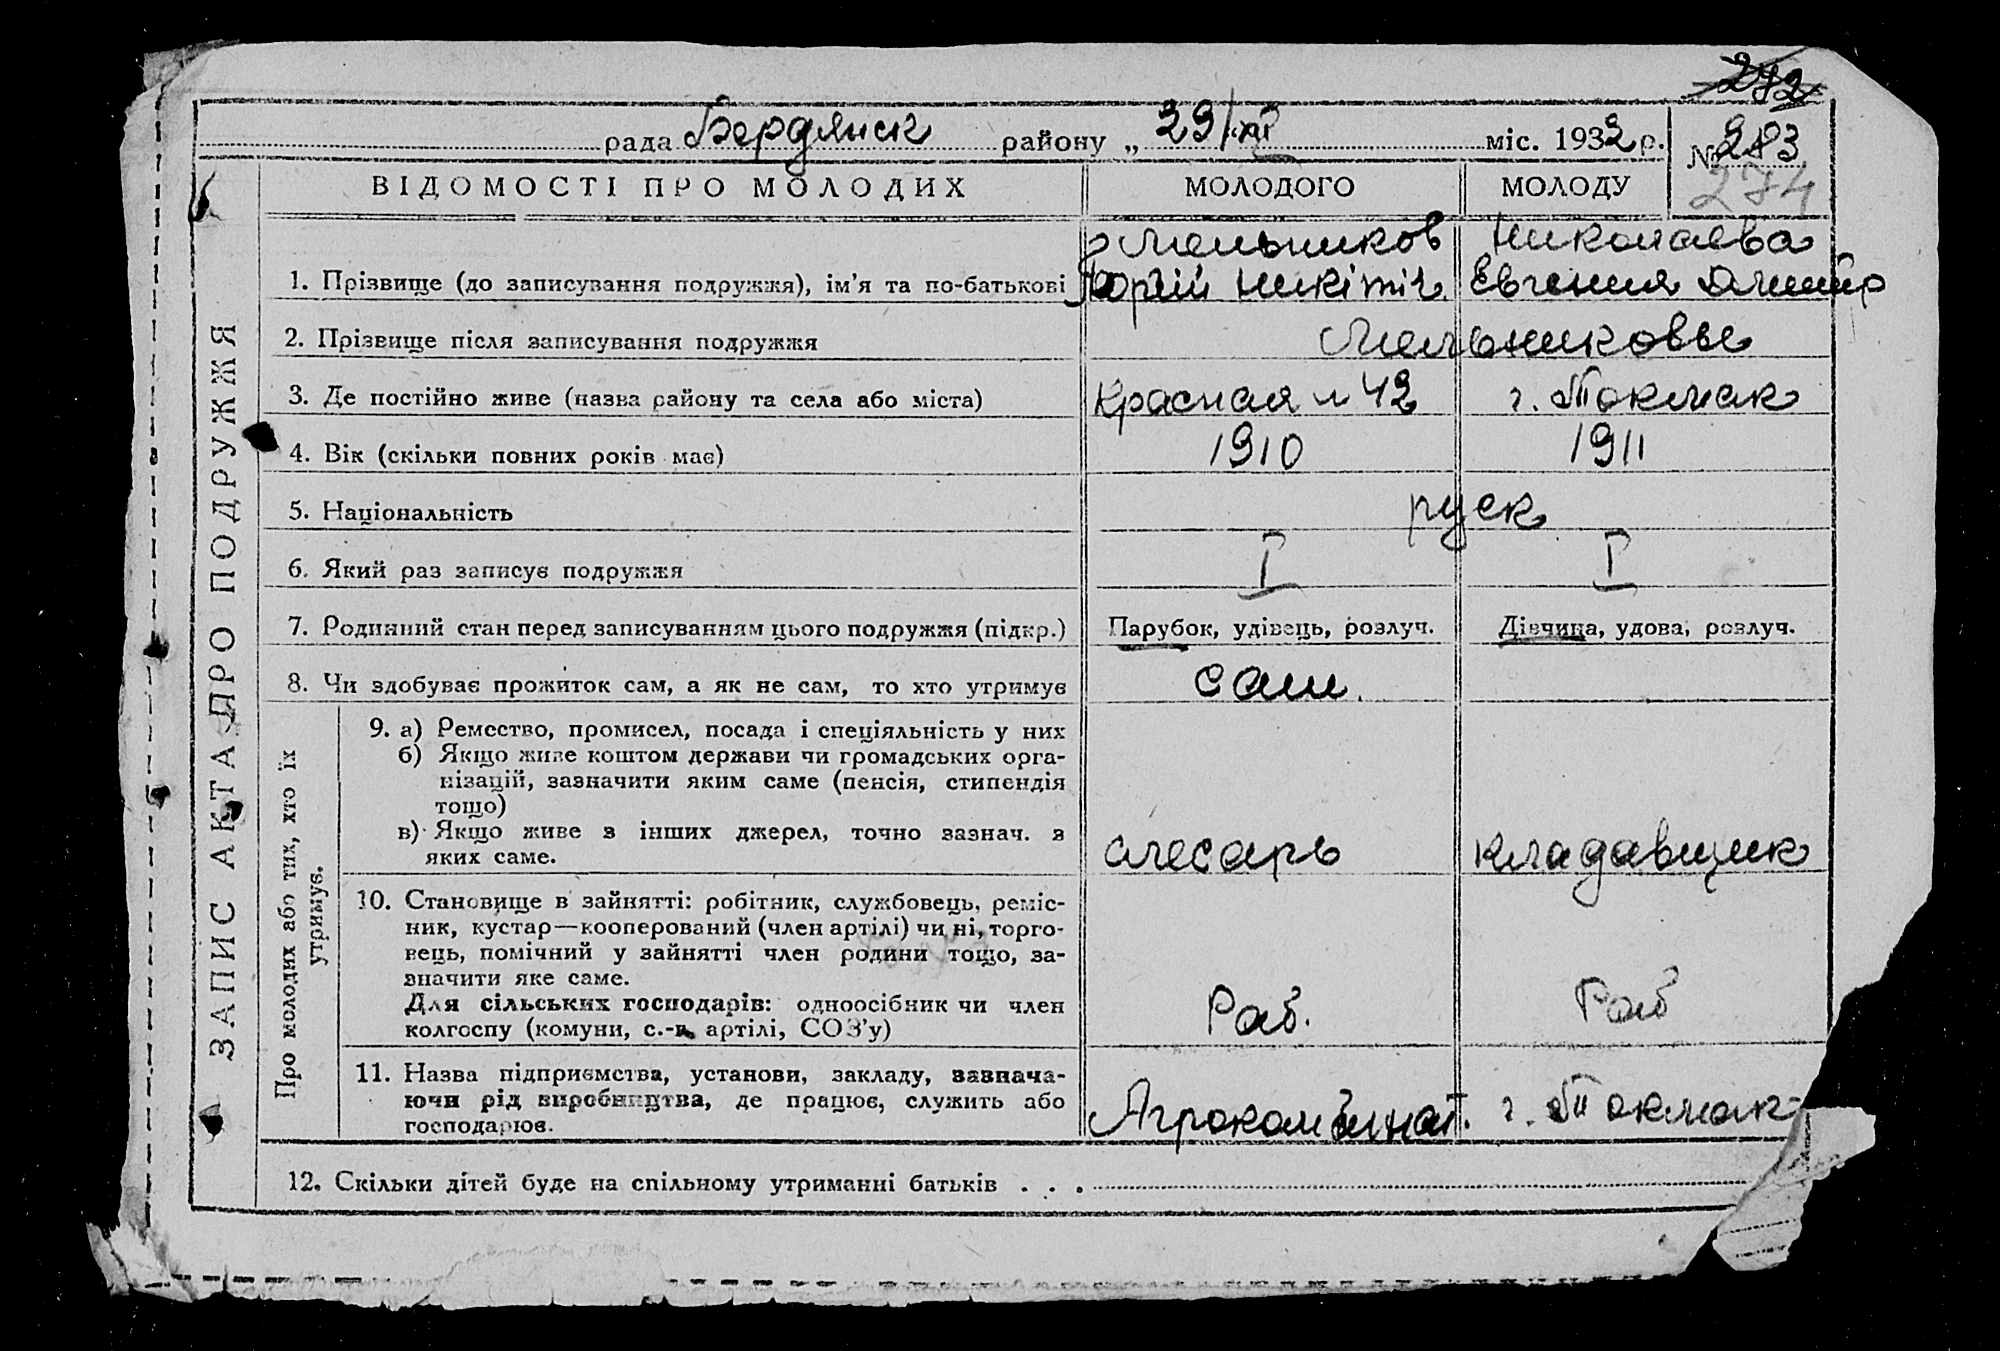 272
рада Бердянск району „ 29/XII міс. 1932 р.
№ 283
274
ЗАПИС АКТА ПРО ПОДРУЖЖЯ
ВІДОМОСТІ ПРО МОЛОДИХ МОЛОДОГО МОЛОДУ
Мельников Николаева
1. Прізвище (до записування подружжя), ім'я та по-батькові Юрій Никітіч. Евгения Димитр
2. Прізвище після записування подружжя Мельниковы
3. Де постійно живе (назва району та села або міста) Красная 42 г. Токмак
4. Вік (скільки повних років має) 1910 1911
5. Національність руск
6. Який раз записує подружжя I I
7. Родинний стан перед записуванням цього подружжя (підкр.) Парубок, удівець, розлуч. Дівчина, удова, розлуч.
8. Чи здобуває прожиток сам, а як не сам, то хто утримує сам.
Про молодих або тих, хто їх утримує.
9. а) Ремество, промисел, посада і спеціяльність у них
б) Якщо живе коштом держави чи громадських орга-
нізацій, зазначити яким саме (пенсія, стипендія
тощо)
в) Якщо живе з інших джерел, точно зазнач. з
яких саме. слесарь кладавщик
10. Становище в зайнятті: робітник, службовець, реміс-
ник, кустар—кооперований (член артілі) чи ні, торго-
вець, помічний у зайнятті член родини тощо, за-
значити яке саме.
Для сільських господарів: одноосібник чи член
колгоспу (комуни, с.-г. артілі, СОЗ'у) Раб. Раб
11. Назва підприємства, установи, закладу, зазнача-
ючи рід виробництва, де працює, служить або
господарює. Агрокомбинат. г. Токмак
12. Скільки дітей буде на спільному утриманні батьків . . .